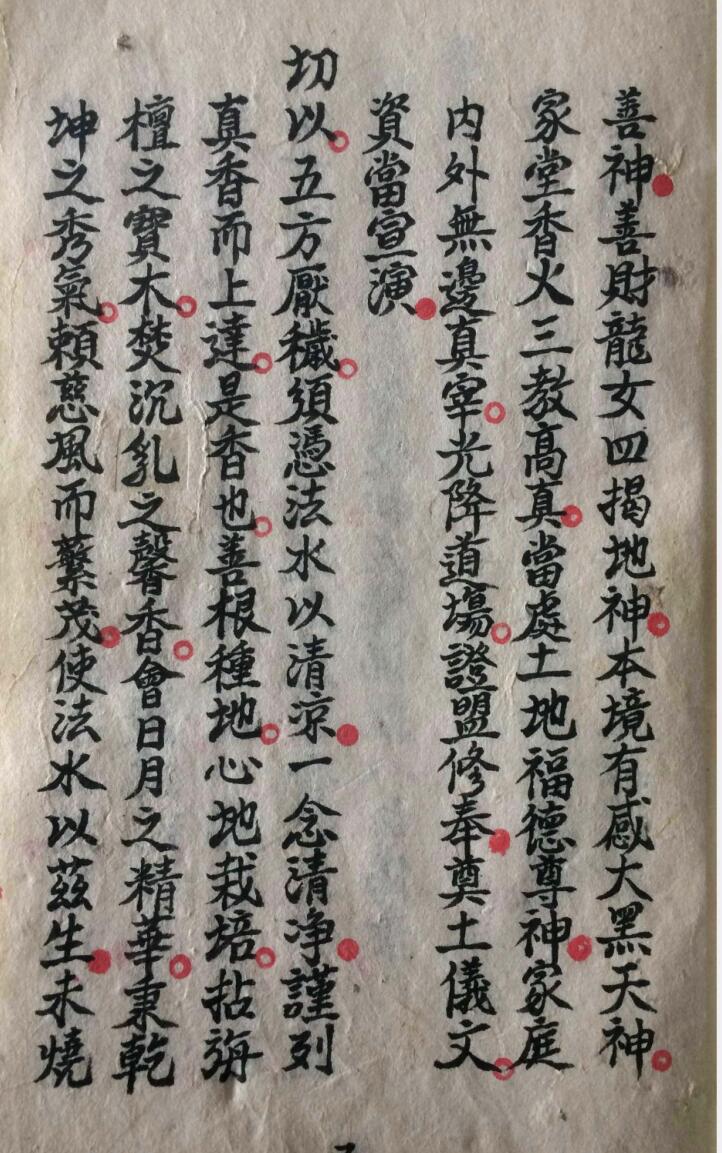 善神善財龍女四揭地神本境有感大黑天神
家堂香火三教高真當處土地福德尊神家庭
内外無邊真宰光降道場證盟修奉奠土儀文
資當宣演
切以五方厭穢須憑法水以清涼一念清净謹列
真香而上達是香也善根種地心地栽培拈海
檀之寶木焚沉乳之馨香會日月之精華秉乾
坤之秀氣頼慈風而蘩茂使法水以茲生未燒